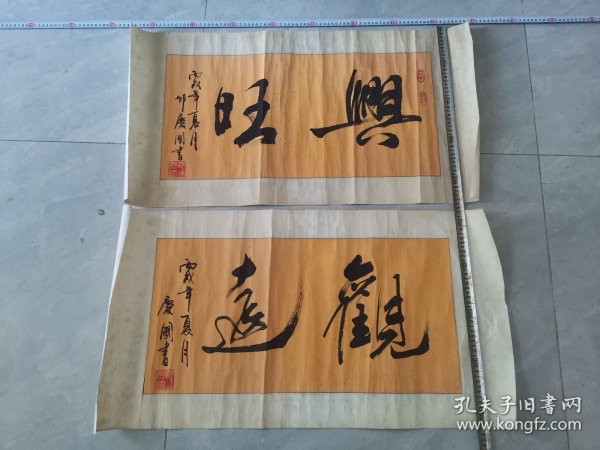 興旺
丙戌年夏月
慶國書
觀遠
丙戌年夏月
慶國書
孔夫子旧書网
www.kongfz.com